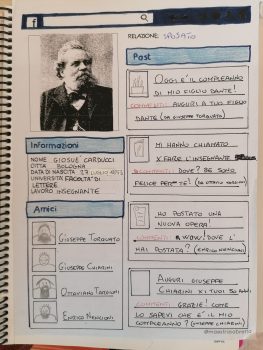 f
RELAZIONE: SPOSATO
Informazioni
NOME GIOSUÈ CARDUCCI
CITTÀ BOLOGNA
DATA DI NASCITA 27 LUGLIO 1835
UNIVERSITÀ FACOLTÀ DI
LETTERE
LAVORO INSEGNANTE
Amici
GIUSEPPE TORQUATO
GIUSEPPE CHIARINI
OTTAVIANO TARGIONI
ENRICO NENCIONI
Post
OGGI È IL COMPLEANNO
DI MIO FIGLIO DANTE!
COMMENTI: AUGURI A TUO FIGLIO
DANTE (DA GIUSEPPE TORQUATO)
MI HANNO CHIAMATO
X FARE L'INSEGNANTE
COMMENTI: DOVE? SE SONO
FELICE PER TE! (DA OTTAVIO TARGIONI)
HO POSTATO UNA
NUOVA OPERA!
COMMENTI: WOW! DOVE L'
HAI POSTATA? (ENRICO NENCIONI)
AUGURI GIUSEPPE
CHIARINI X I TUOI 50 ANNI
COMMENTI: GRAZIE! COME
LO SAPEVI CHE È IL MIO
COMPLEANNO? (GIUSEPPE CHIARINI)